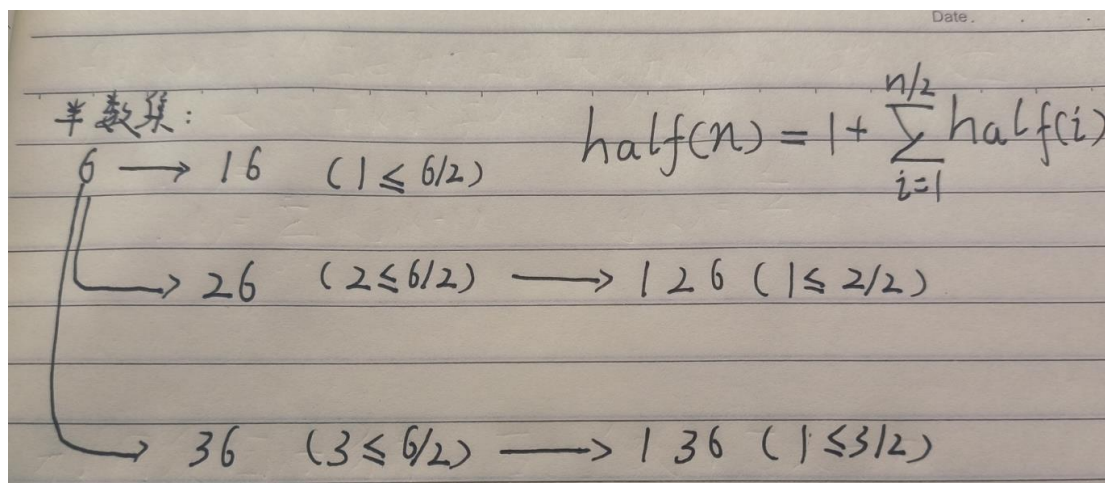 Date.
半数集:
half(n) = 1 + \sum_{i=1}^{n/2} half(i)
6 → 16 (1 ≤ 6/2)
→ 26 (2 ≤ 6/2) → 126 (1 ≤ 2/2)
→ 36 (3 ≤ 6/2) → 136 (1 ≤ 3/2)